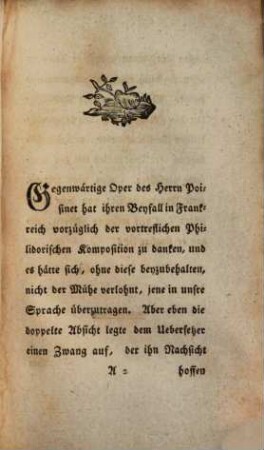 Gegenwärtige Oper des Herrn Poi-
sinet hat ihren Beyfall in Frank-
reich vorzüglich der vortreflichen Phi-
lidorischen Komposition zu danken, und
es hätte sich, ohne diese beyzubehalten,
nicht der Mühe verlohnt, jene in unsre
Sprache überzutragen. Aber eben die
doppelte Absicht legte dem Uebersetzer
einen Zwang auf, der ihn Nachsicht
A 2 hoffen